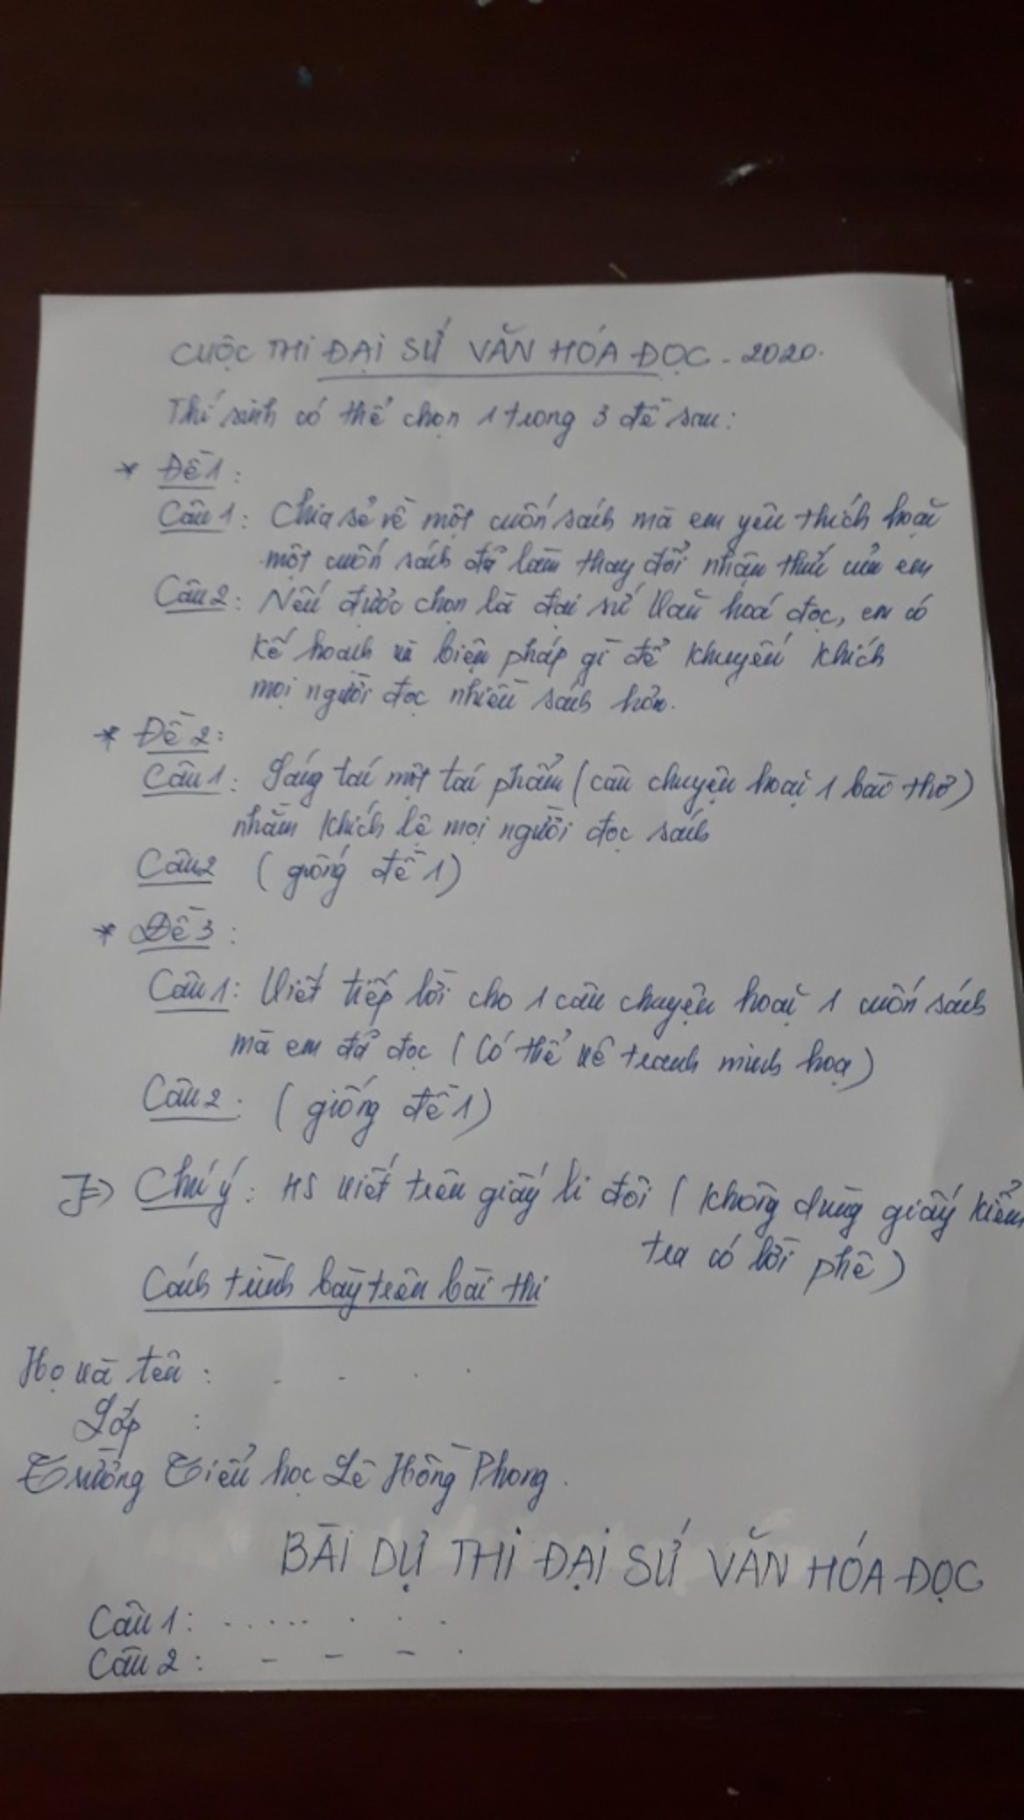 CUỘC THI ĐẠI SỨ VĂN HÓA ĐỌC - 2020.
Thí sinh có thể chọn 1 trong 3 đề sau:
* Đề 1:
Câu 1: Chia sẻ về một cuốn sách mà em yêu thích hoặc
một cuốn sách đã làm thay đổi nhận thức của em
Câu 2: Nếu được chọn là đại sứ Văn hoá đọc, em có
kế hoạch và biện pháp gì để khuyến khích
mọi người đọc nhiều sách hơn.
* Đề 2:
Câu 1: Sáng tác một tác phẩm (câu chuyện hoặc 1 bài thơ)
nhằm khích lệ mọi người đọc sách
Câu 2 (giống đề 1)
* Đề 3:
Câu 1: Viết tiếp lời cho 1 câu chuyện hoặc 1 cuốn sách
mà em đã đọc (Có thể vẽ tranh minh hoạ)
Câu 2: (giống đề 1)
=> Chú ý: HS viết trên giấy li đôi (không dùng giấy kiểm
tra có lời phê)
Cách trình bày trên bài thi
Họ và tên : . - . .
Lớp :
Trường Tiểu học Lê Hồng Phong.
BÀI DỰ THI ĐẠI SỨ VĂN HÓA ĐỌC
Câu 1: . . . . . . . .
Câu 2: - - - .